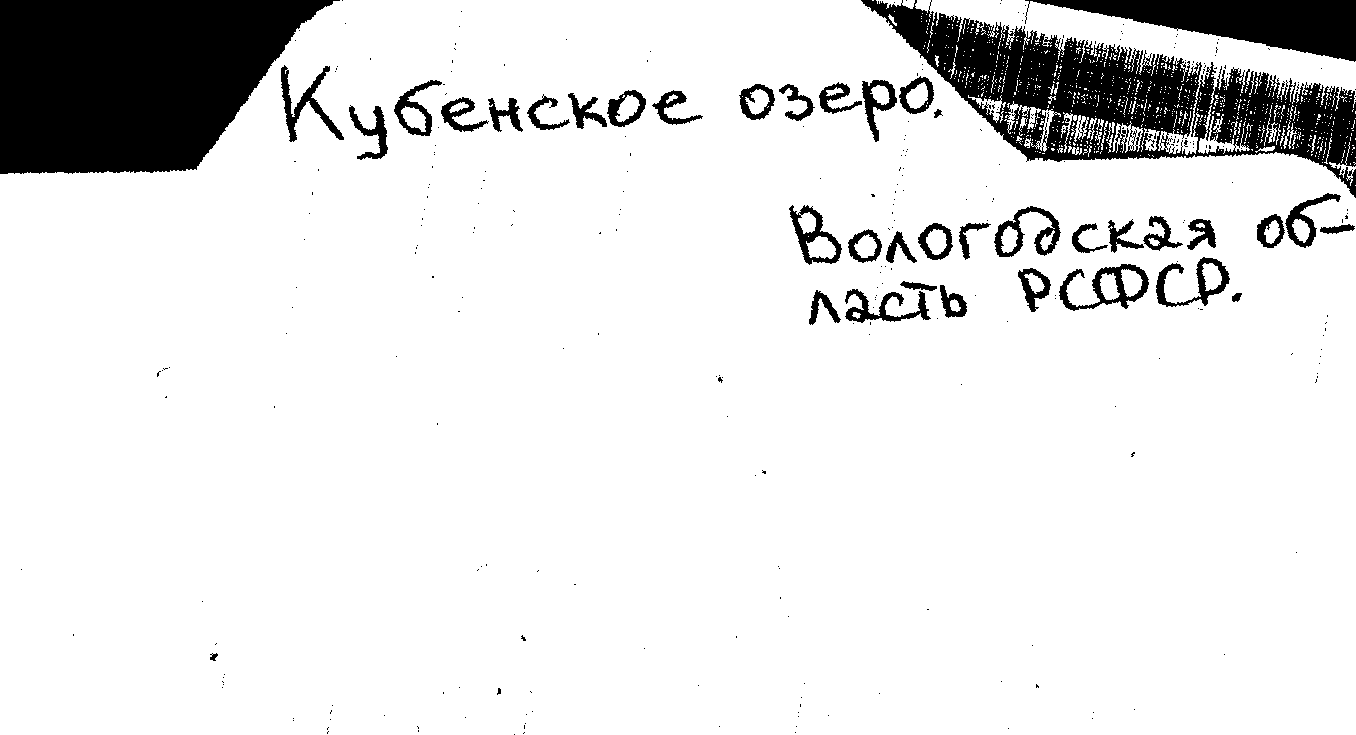 Кубенское озеро.
Вологодская об-
ласть РСФСР.